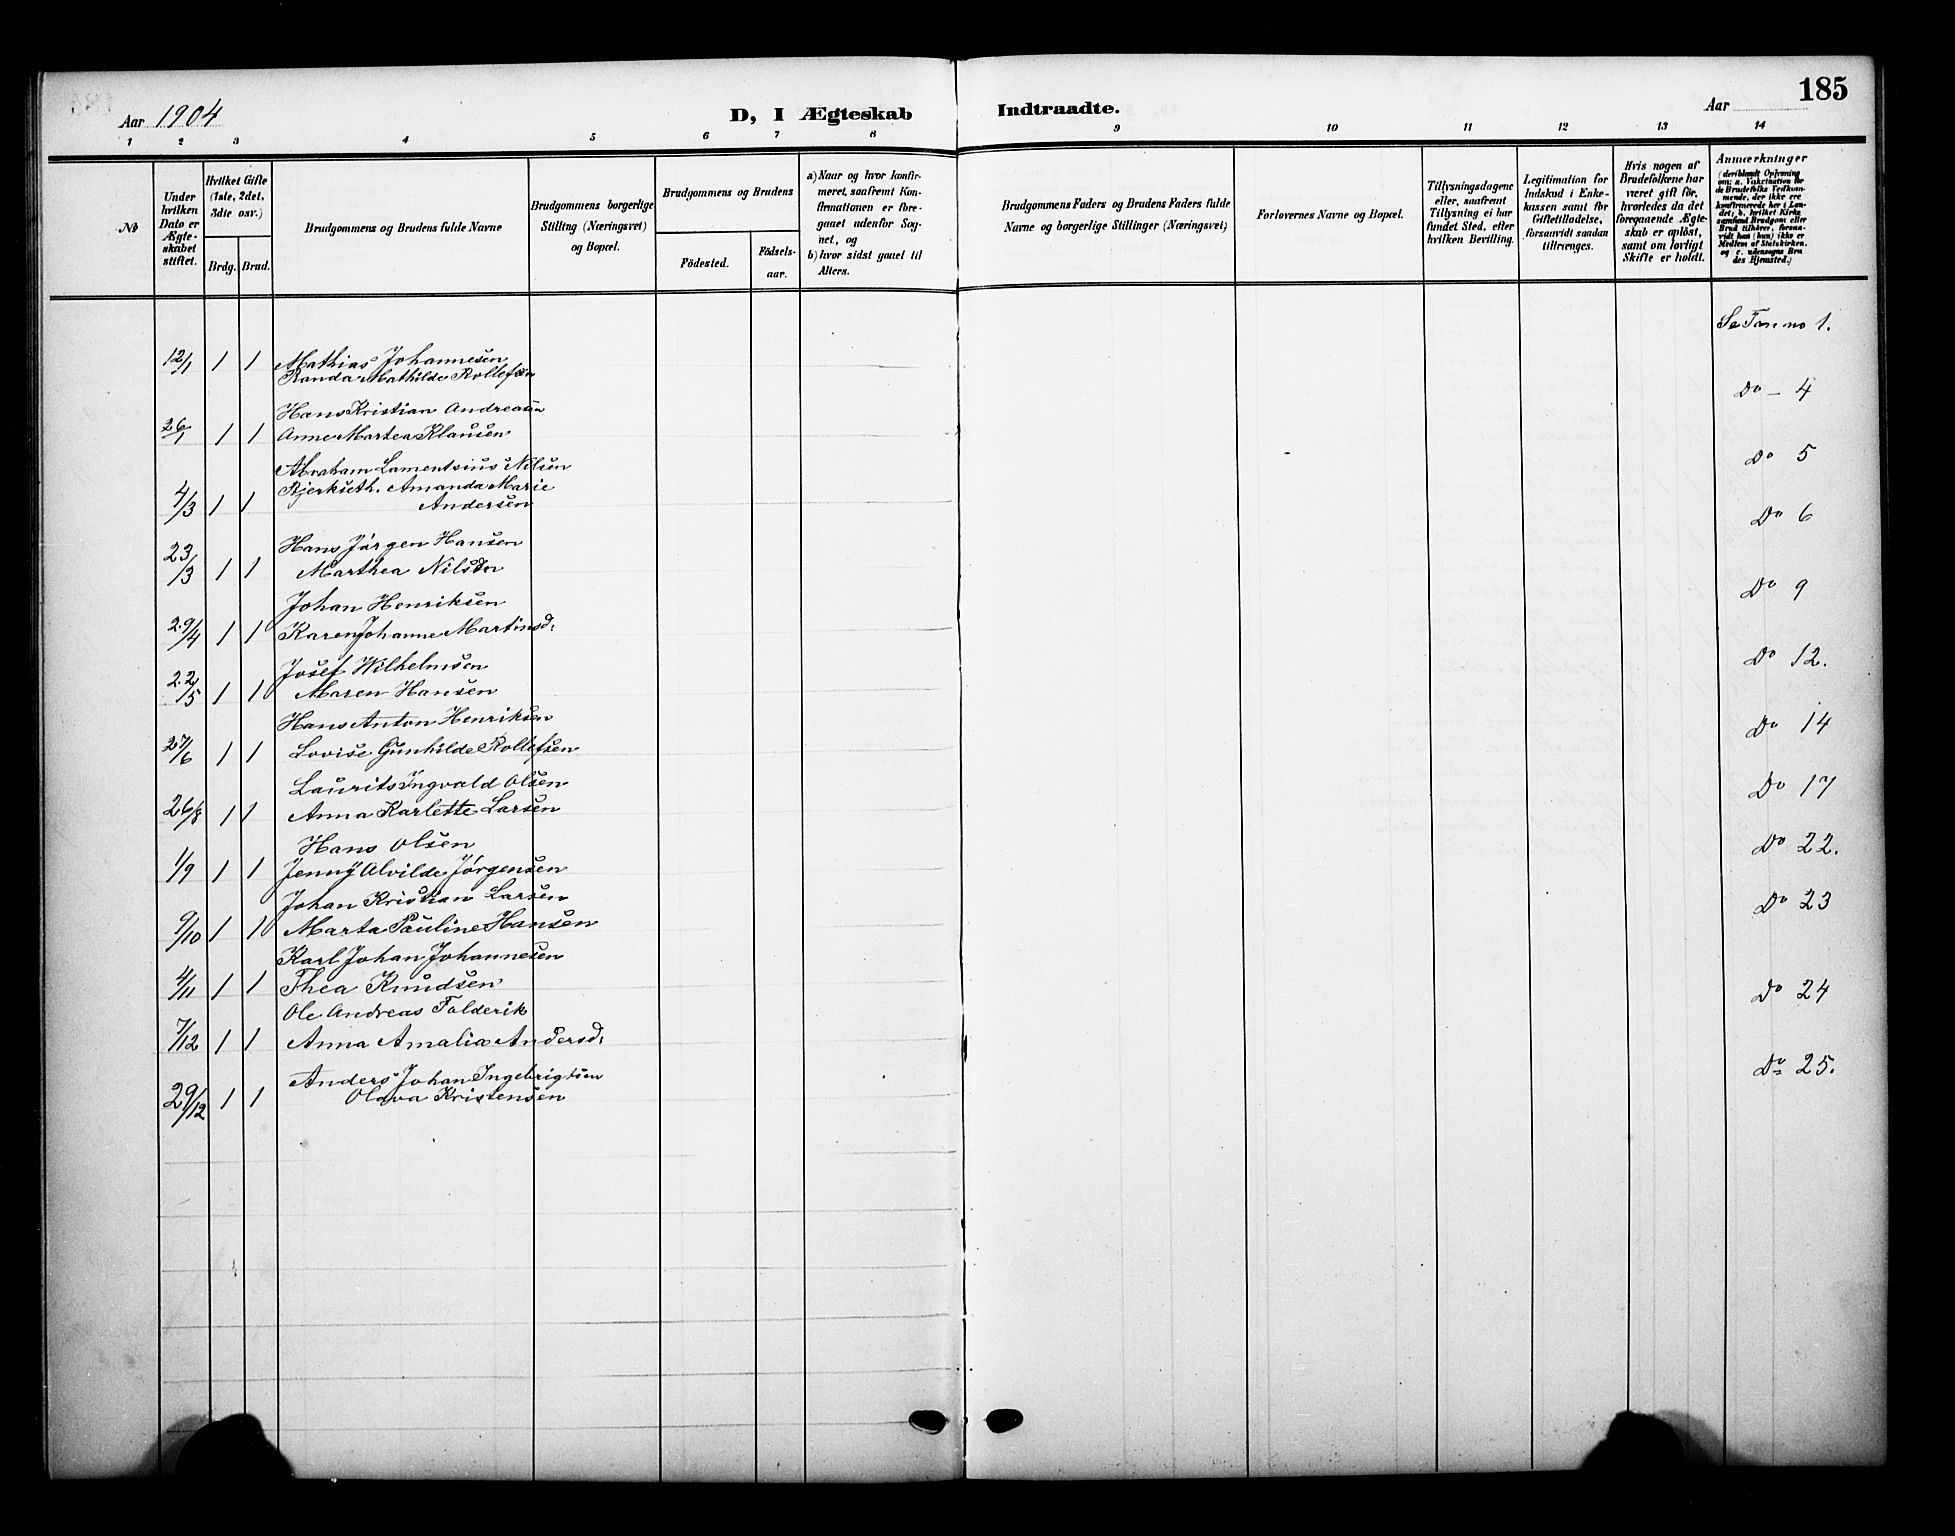 185
Aar 1904
D, I Ægteskab Indtraadte.
Aar
1 2 3 4 5 6 7 8 9 10 11 12 13 14
No
Under hvilken Dato er Ægte-skabet stiftet.
Hvilket Gifte (1ste, 2det, 3dte osv.)
Brdg. Brud.
Brudgommens og Brudens fulde Navne
Brudgommens borgerlige Stilling (Næringsvei) og Bopæl.
Brudgommens og Brudens
Födested.
Födsels-aar.
a) Naar og hvor konfir-meret, saafremt Kon-firmationen er fore-gaaet udenfor Sog-net, og
b) hvor sidst gaaet til Alters.
Brudgommens Faders og Brudens Faders fulde Navne og borgerlige Stillinger (Næringsvei)
Forlovernes Navne og Bopæl.
Tillysningsdagene eller, saafremt Tillysning ei har fundet Sted, efter hvilken Bevilling.
Legitimation for Indskud i Enke-kassen samt for Giftetilladelse, forsaavidt saadan tiltrenges.
Hvis nogen af Brudefolkene har været gift för, hvorledes da det foregaaende Ægte-skab er oplöst, samt om lovligt Skifte er holdt.
Anmærkninger (deriblandt Oplysning om: a. Vakcination for de Brudefolks Vedkom-mende, der ikke ere konfirmerede her i Lan-det; b. hvilket Kirke-samfund Brudgom eller Brud tilhører, forsaa-vidt han (hun) ikke er Medlem af Statskirken, og c. udensogns Bru-des Hjemsted.)
Se no 1.
12/1 1 1 Mathias Johannesen
Randa Mathilde Rollefsen
Do - 4
Hans Kristian Andreasen
26/1 1 1 Anne Martea Klausen
Do 5
Abraham Lamentsius Nilsen
Bjerkseth. Amanda Marie
4/3 1 1 Andersen
Do 6
Hans Jørgen Hansen
23/3 1 1 Marthea Nilsen
Do 9
Johan Henriksen
29/4 1 1 Karen Johanne Martinsd.
Do 12.
Josef Wilhelmsen
22/5 1 1 Maren Hansen
Do 14
Hans Anton Henriksen
27/6 1 1 Lovise Gunhilde Rollefsen
Do 17
Laurits Ingvald Olsen
26/8 1 1 Anna Karlette Larsen
Do 22.
Hans Olsen
1/9 1 1 Jenny Alvilde Jørgensen
Do 23
Johan Kristian Larsen
9/10 1 1 Marta Pauline Hansen
Karl Johan Johannesen
4/11 1 1 Thea Knudsen
Do 24
Ole Andreas Folderik
7/12 1 1 Anna Amalia Andersd.
Do 25.
Anders Johan Ingebrigtsen
29/12 1 1 Olava Kristensen